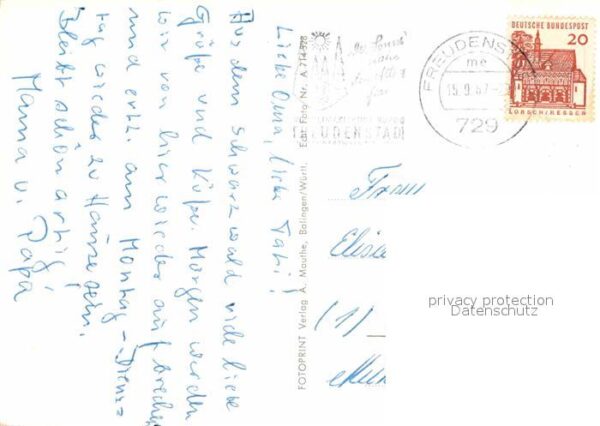 Liebe Oma, liebe Tati!
Aus dem Schwarzwald viele liebe
Grüße und Küße. Morgen werden
wir von hier wieder aufbrechen
und evtl. am Montag - Diens=
tag wieder zu Hause sein.
Bleibt schön artig!
Mama u. Papa
Echt Foto Nr. A 714-528
FOTOPRINT Verlag A. Mauthe, Balingen/Württ.
FREUDENSTADT
FREUDENST
me
15.9.67
729
DEUTSCHE BUNDESPOST
20
LORSCH/HESSEN
Frau
Elisa
(1)
privacy protection
Datenschutz